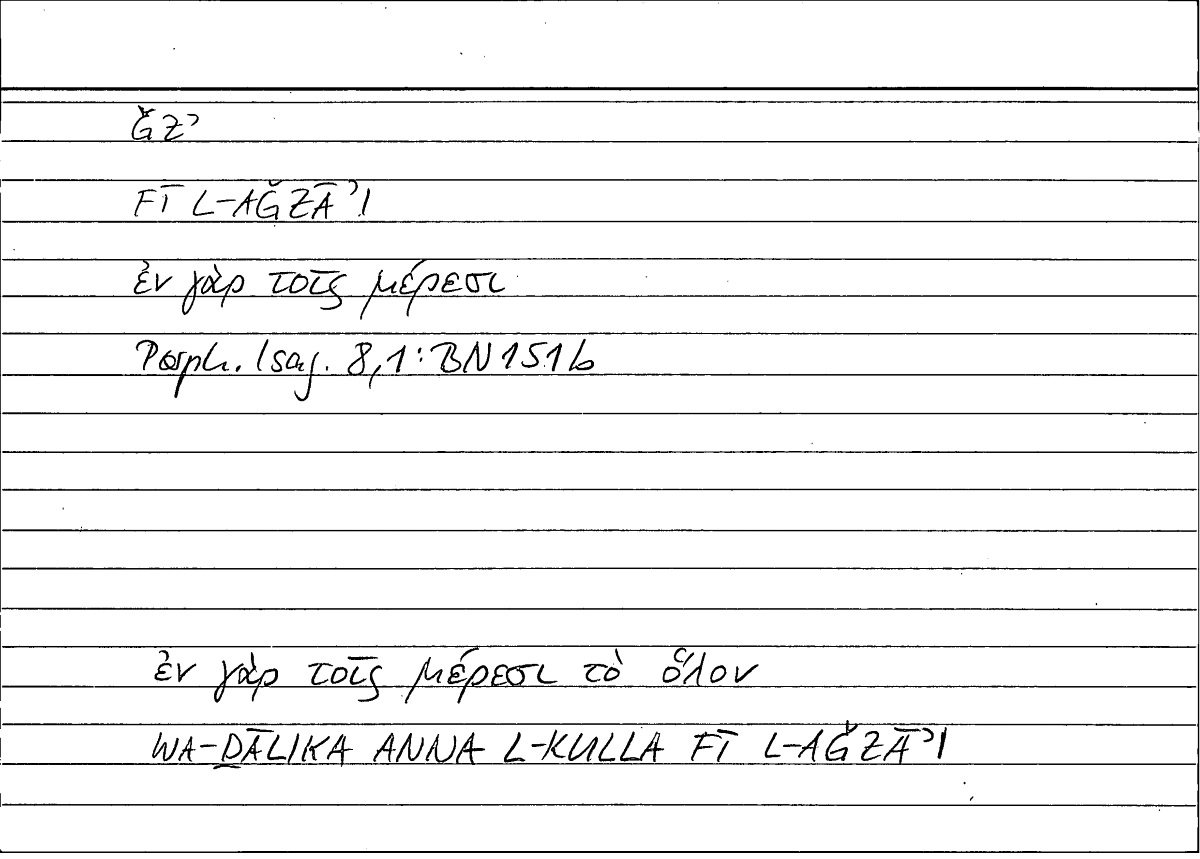 ǦZʾ
FĪ L-AǦZĀʾI
ἐν γὰρ τοῖς μέρεσι
Porph. Isag. 8,1: BN 151b
ἐν γὰρ τοῖς μέρεσι τὸ ὅλον
WA-ḎĀLIKA ANNA L-KULLA FĪ L-AǦZĀʾI